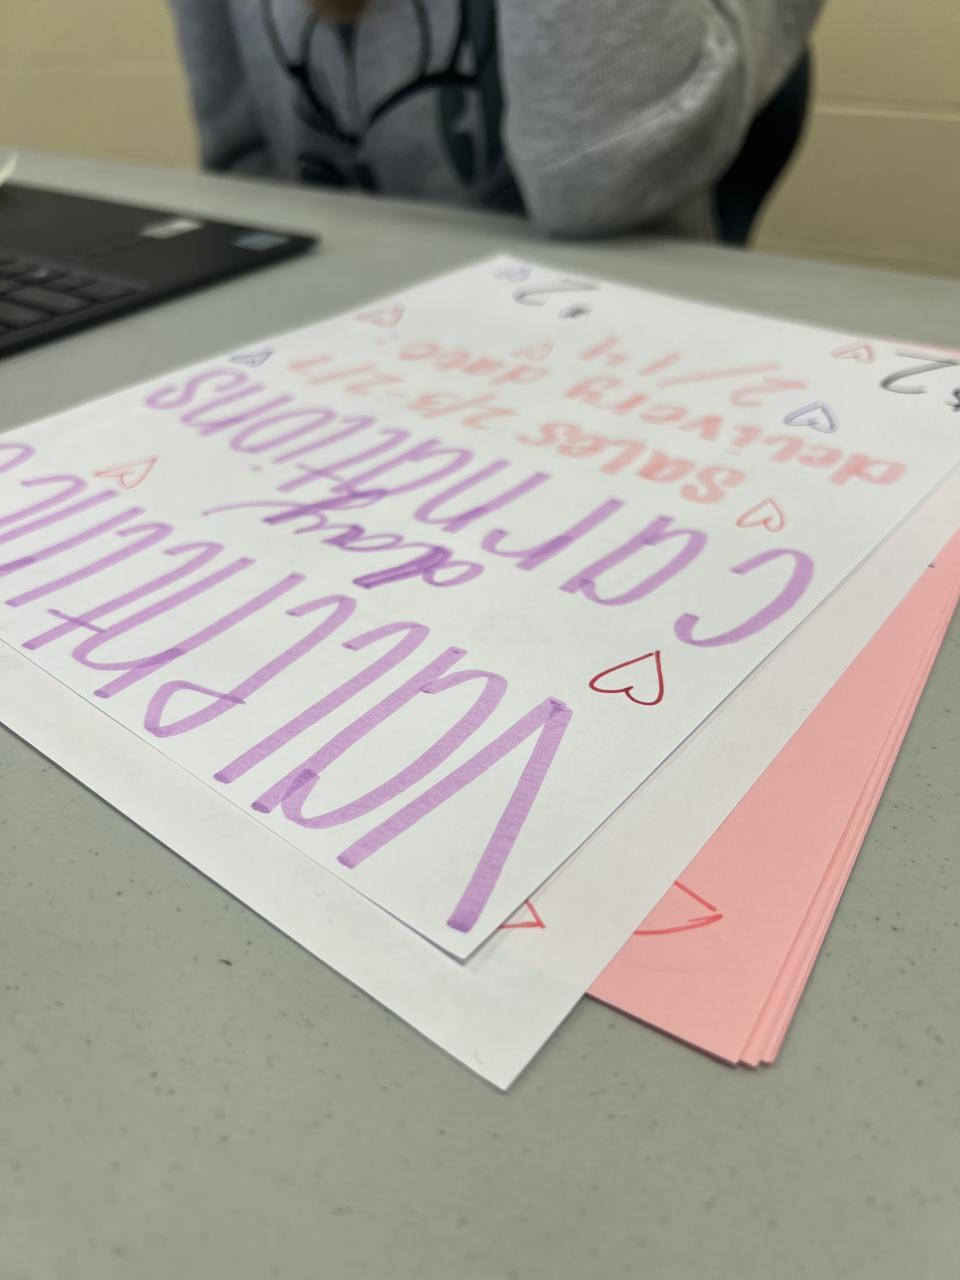 Valentine
day
carnations
sales 2/3-2/7
delivery date:
2/14
$2
$2